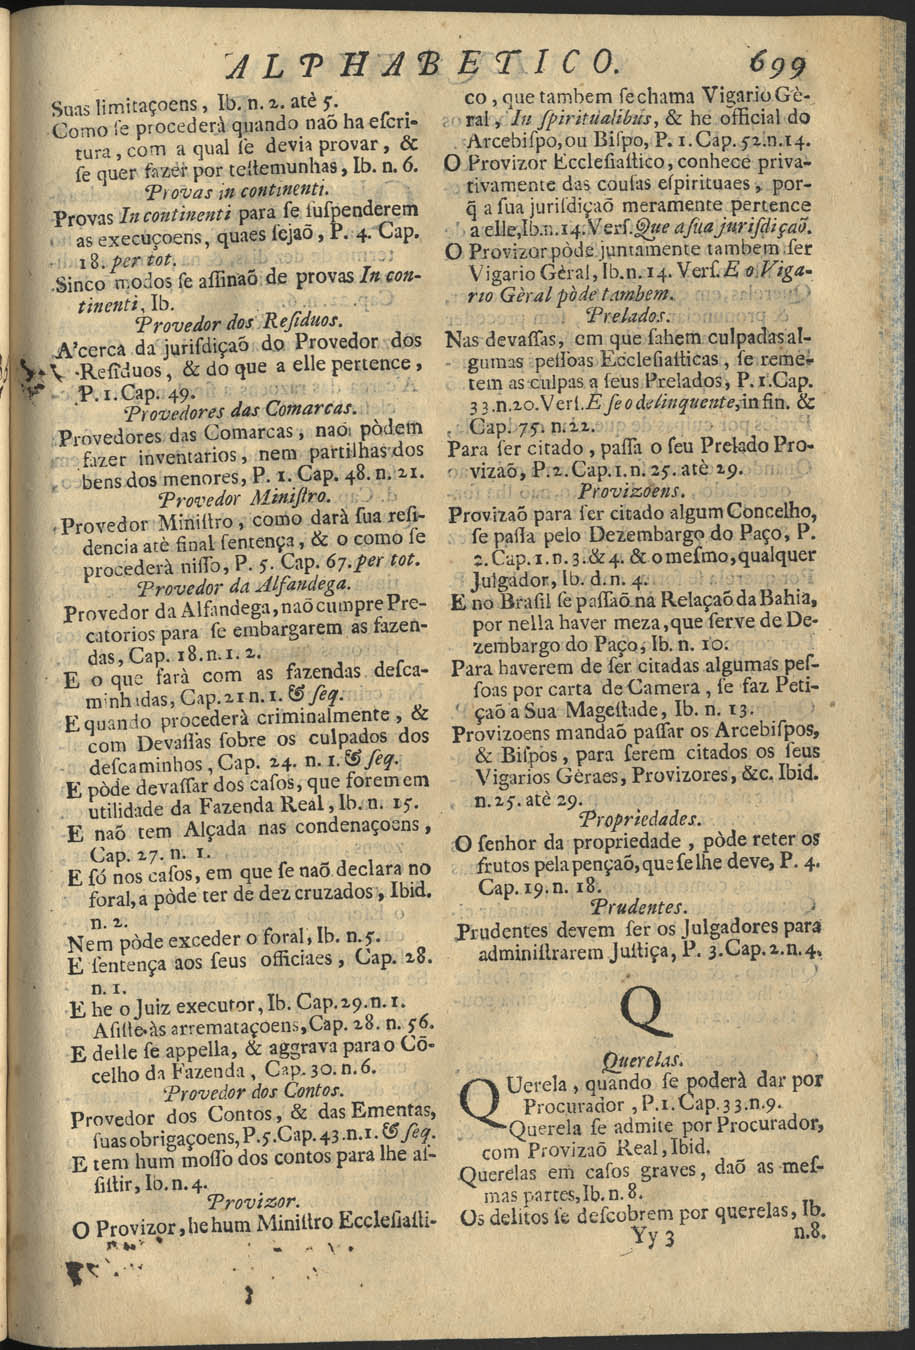 ALPHABETICO. 699
Suas limitaçoens, Ib. n. 2. atè 5.
Como ſe procederà quando naõ ha eſcri-
tura, com a qual ſe devia provar, &
ſe quer fazer por teſtemunhas, Ib. n. 6.
Provas in continenti.
Provas In continenti para ſe ſuſpenderem
as execuçoens, quaes ſejaõ, P. 4. Cap.
18. per tot.
Sinco modos ſe aſſinaõ de provas In con-
tinenti, Ib.
Provedor dos Reſiduos.
A'cerca da juriſdiçaõ do Provedor dos
Reſiduos, & do que a elle pertence,
P. 1. Cap. 49.
Provedores das Comarcas.
Provedores das Comarcas, naõ pòdem
fazer inventarios, nem partilhas dos
bens dos menores, P. 1. Cap. 48. n. 21.
Provedor Miniſtro.
Provedor Miniſtro, como darà ſua reſi-
dencia atè final ſentença, & o como ſe
procederà niſſo, P. 5. Cap. 67. per tot.
Provedor da Alfandega.
Provedor da Alfandega, naõ cumpre Pre-
catorios para ſe embargarem as fazen-
das, Cap. 18. n. 1. 2.
E o que farà com as fazendas deſca-
minhadas, Cap. 21 n. 1. & ſeq.
E quando procederà criminalmente, &
com Devaſſas ſobre os culpados dos
deſcaminhos, Cap. 24. n. 1. & ſeq.
E pòde devaſſar dos caſos, que forem em
utilidade da Fazenda Real, Ib. n. 15.
E naõ tem Alçada nas condenaçoens,
Cap. 27. n. 1.
E só nos caſos, em que ſe naõ declara no
foral, a pòde ter de dez cruzados, Ibid.
n. 2.
Nem pòde exceder o foral, Ib. n. 5.
E ſentença aos ſeus officiaes, Cap. 28.
n. 1.
E he o Juiz executor, Ib. Cap. 29. n. 1.
Aſiſte às arremataçoens, Cap. 28. n. 56.
E delle ſe appella, & aggrava para o Cõ-
celho da Fazenda, Cap. 30. n. 6.
Provedor dos Contos.
Provedor dos Contos, & das Ementas,
ſuas obrigaçoens, P. 5. Cap. 43. n. 1. & ſeq.
E tem hum moſſo dos contos para lhe aſ-
ſiſtir, Ib. n. 4.
Provizor.
O Provizor, he hum Miniſtro Eccleſiaſti-
co, que tambem ſe chama Vigario Gè-
ral, In ſpiritualibus, & he official do
Arcebiſpo, ou Biſpo, P. 1. Cap. 52. n. 14.
O Provizor Eccleſiaſtico, conhece priva-
tivamente das couſas eſpirituaes, por-
q̃ a ſua juriſdiçaõ meramente pertence
a elle, Ib. n. 14. Verſ. Que a ſua juriſdiçaõ.
O Provizor pòde juntamente tambem ſer
Vigario Gèral, Ib. n. 14. Verſ. E o Viga-
rio Gèral pòde tambem.
Prelados.
Nas devaſſas, em que ſahem culpadas al-
gumas peſſoas Eccleſiaſticas, ſe reme-
tem as culpas a ſeus Prelados, P. 1. Cap.
33. n. 20. Verſ. E ſe o delinquente, in fin. &
Cap. 75. n. 22.
Para ſer citado, paſſa o ſeu Prelado Pro-
vizaõ, P. 2. Cap. 1. n. 25. atè 29.
Provizoens.
Provizaõ para ſer citado algum Concelho,
ſe paſſa pelo Dezembargo do Paço, P.
2. Cap. 1. n. 3. & 4. & o meſmo, qualquer
Julgador, Ib. d. n. 4.
E no Braſil ſe paſſaõ na Relaçaõ da Bahia,
por nella haver meza, que ſerve de De-
zembargo do Paço, Ib. n. 10.
Para haverem de ſer citadas algumas peſ-
ſoas por carta de Camera, ſe faz Peti-
çaõ a Sua Mageſtade, Ib. n. 13.
Provizoens mandaõ paſſar os Arcebiſpos,
& Biſpos, para ſerem citados os ſeus
Vigarios Gèraes, Provizores, &c. Ibid.
n. 25. atè 29.
Propriedades.
O ſenhor da propriedade, pòde reter os
frutos pela pençaõ, que ſe lhe deve, P. 4.
Cap. 19. n. 18.
Prudentes.
Prudentes devem ſer os Julgadores para
adminiſtrarem Juſtiça, P. 3. Cap. 2. n. 4.
Q
Querelas.
QUerela, quando ſe poderà dar por
Procurador, P. 1. Cap. 33. n. 9.
Querela ſe admite por Procurador,
com Provizaõ Real, Ibid.
Querelas em caſos graves, daõ as meſ-
mas partes, Ib. n. 8.
Os delitos ſe deſcobrem por querelas, Ib.
Yy 3 n. 8.